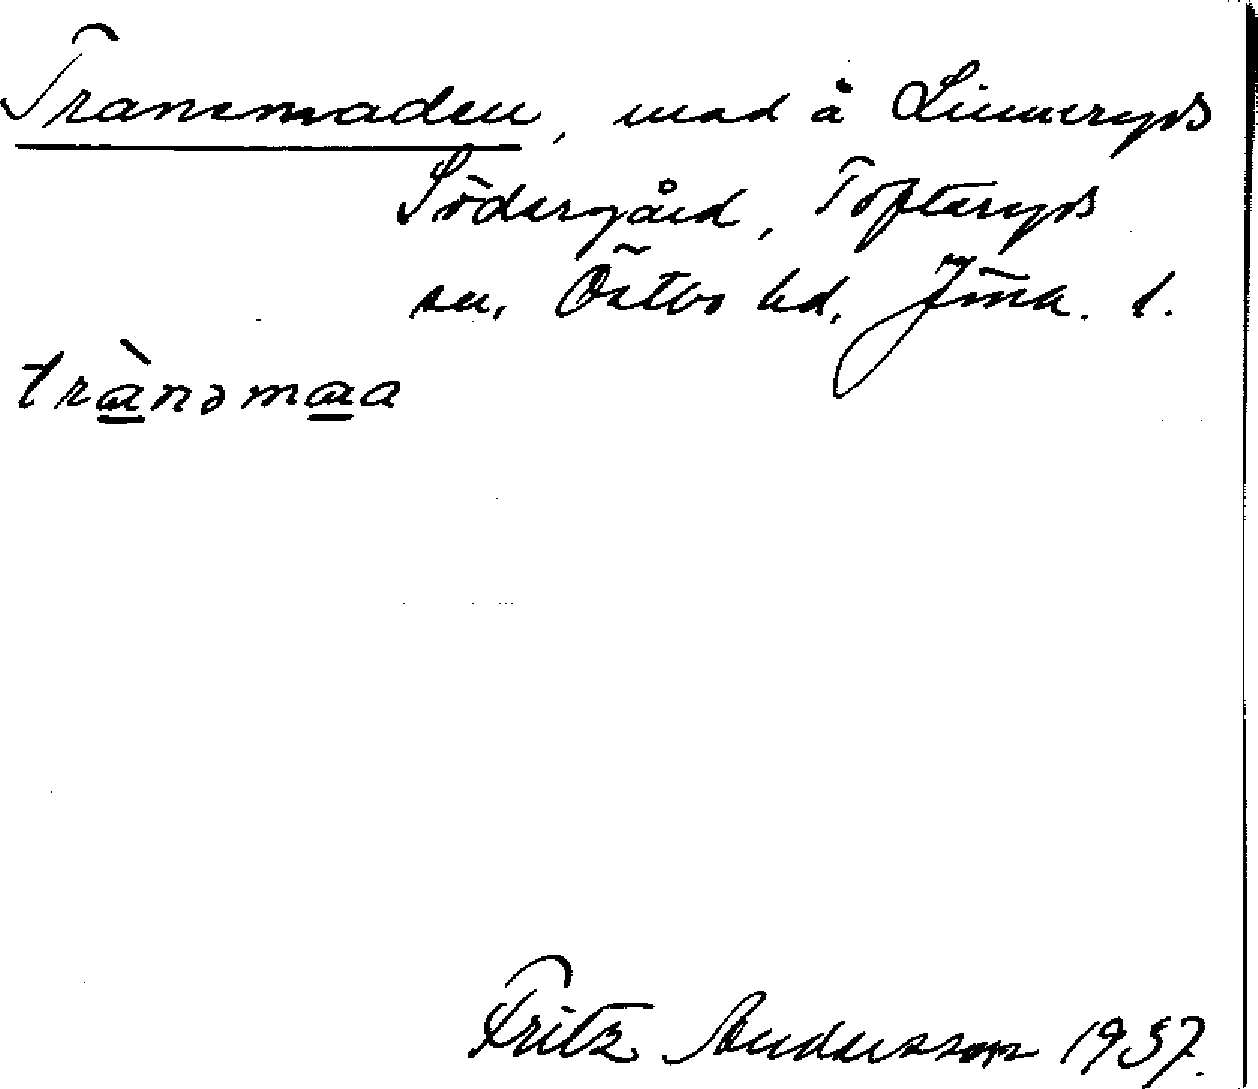 Tranemaden, mad å Linneryds
Södergård, Tofteryds
sn, Östbo hd, Jönk. l.
trànəmaa
Fritz Andersson 1937.